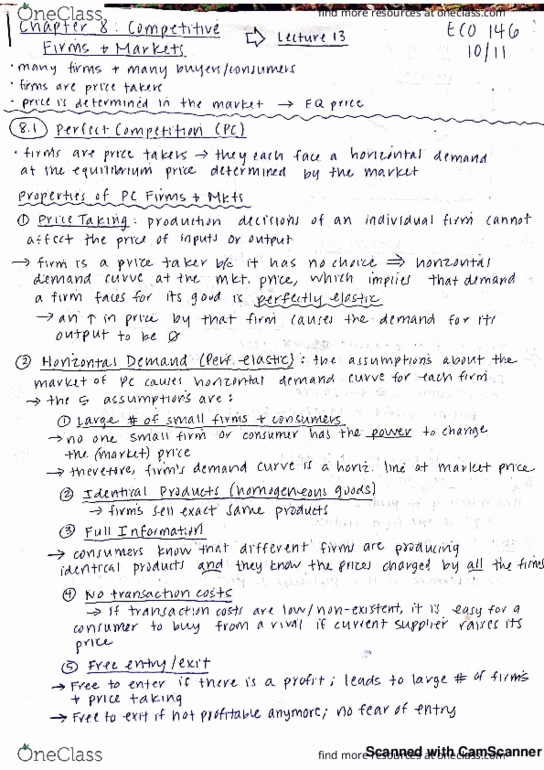 OneClass
find more resources at oneclass.com
Chapter 8: Competitive
Firms + Markets
Lecture 13
ECO 146
10/11
• many firms + many buyers/consumers
• firms are price takers
• price is determined in the market → EQ price
8.1 Perfect Competition (PC)
• firms are price takers → they each face a horizontal demand
at the equilibrium price determined by the market
Properties of PC Firms + Mkts
① Price Taking: production decisions of an individual firm cannot
affect the price of inputs or output
→ firm is a price taker b/c it has no choice ⇒ horizontal
demand curve at the mkt. price, which implies that demand
a firm faces for its good is perfectly elastic
→ an ↑ in price by that firm causes the demand for its
output to be ∅
② Horizontal Demand (Perf. elastic): the assumptions about the
market of PC causes horizontal demand curve for each firm
→ the 5 assumptions are:
① Large # of small firms + consumers
→ no one small firm or consumer has the power to change
the (market) price
→ therefore, firm's demand curve is a horiz. line at market price
② Identical Products (homogeneous goods)
→ firms sell exact same products
③ Full Information
→ consumers know that different firm are producing
identical products and they know the prices charged by all the firms
④ No transaction costs
→ If transaction costs are low/non-existent, it is easy for a
consumer to buy from a rival if current supplier raises its
price
⑤ Free entry/exit
→ Free to enter if there is a profit; leads to large # of firms
+ price taking
→ Free to exit if not profitable anymore; no fear of entry
OneClass
find more resources at oneclass.com
Scanned with CamScanner